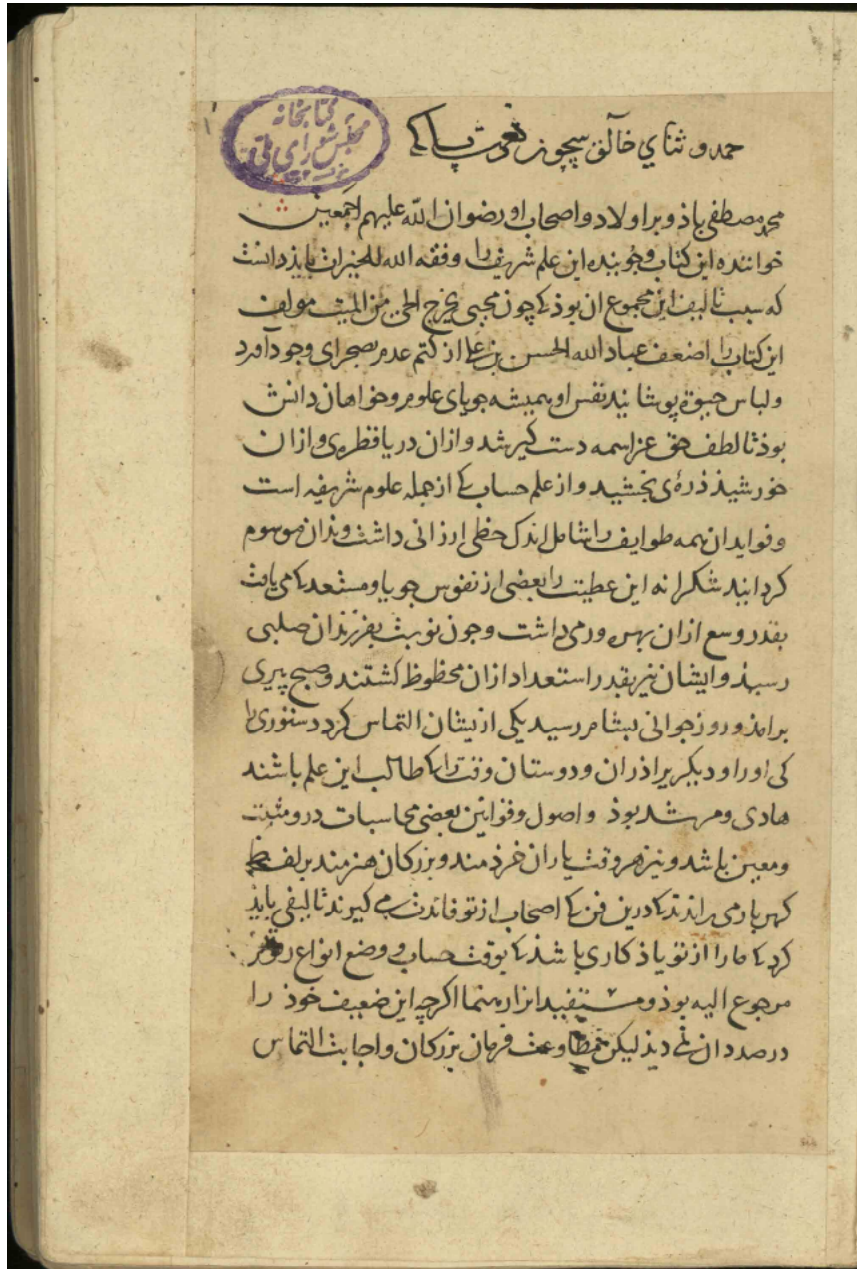 حمد و ثنای خالق بیچون نعوت پاکی
کتابخانه
مجلس شورای ملی
محمد مصطفی باذ و بر اولاد و اصحاب او رضوان الله علیهم اجمعین
خواننده این کتاب و جوینده این علم شریف را وفقه الله للخیرات بایذ دانست
که سبب تالیف این مجموع ان بوذ که چون محیی یخرج الحی من المیت مولف
این کتاب را اضعف عباد الله الحسن بن علی از کتم عدم بصحرای وجود آورد
و لباس حیوة پوشانید نفس او همیشه جویای علوم و خواهان دانش
بوذ تا لطف حق عز اسمه دست کیر شد و ازان دریا قطره‌ی و ازان
خورشیذ ذره‌ی بخشید و از علم حساب که از جمله علوم شریفه است
و فواید ان همه طوایف را شامل اندک حظی ارزانی داشت و بذان موسوم
کردانید شکرانه این عطیت را بعضی از نفوس جویا و مستعد که می یافت
بقدر وسع ازان بهره ور می داشت و چون نوبت بفرزندان صلبی
رسیذ و ایشان نیز بقدر استعداد ازان محظوظ کشتند و صبح پیری
برامذ و روز جوانی بشام رسید یکی ازیشان التماس کرد دستوری را
کی او را و دیکر براذران و دوستان وقت را که طالب این علم باشند
هادی و مرشد بوذ و اصول و قوانین بعضی محاسبات درو مثبت
و معین باشد و نیز هر وقت یاران خرذمند و بزرکان هنرمند بر لفظ
کهربار می راندند که درین فن که اصحاب از تو فائدت می کیرند تالیفی بایذ
کرد که ما را از تو یاذکاری باشذ که بوقت حساب و وضع انواع
مرجوع الیه بوذ و مستفید ازان اکرچه این ضعیف خوذ را
در صدد ان نمی دیذ لیکن مطاوعت فرمان بزرکان و اجابت التماس